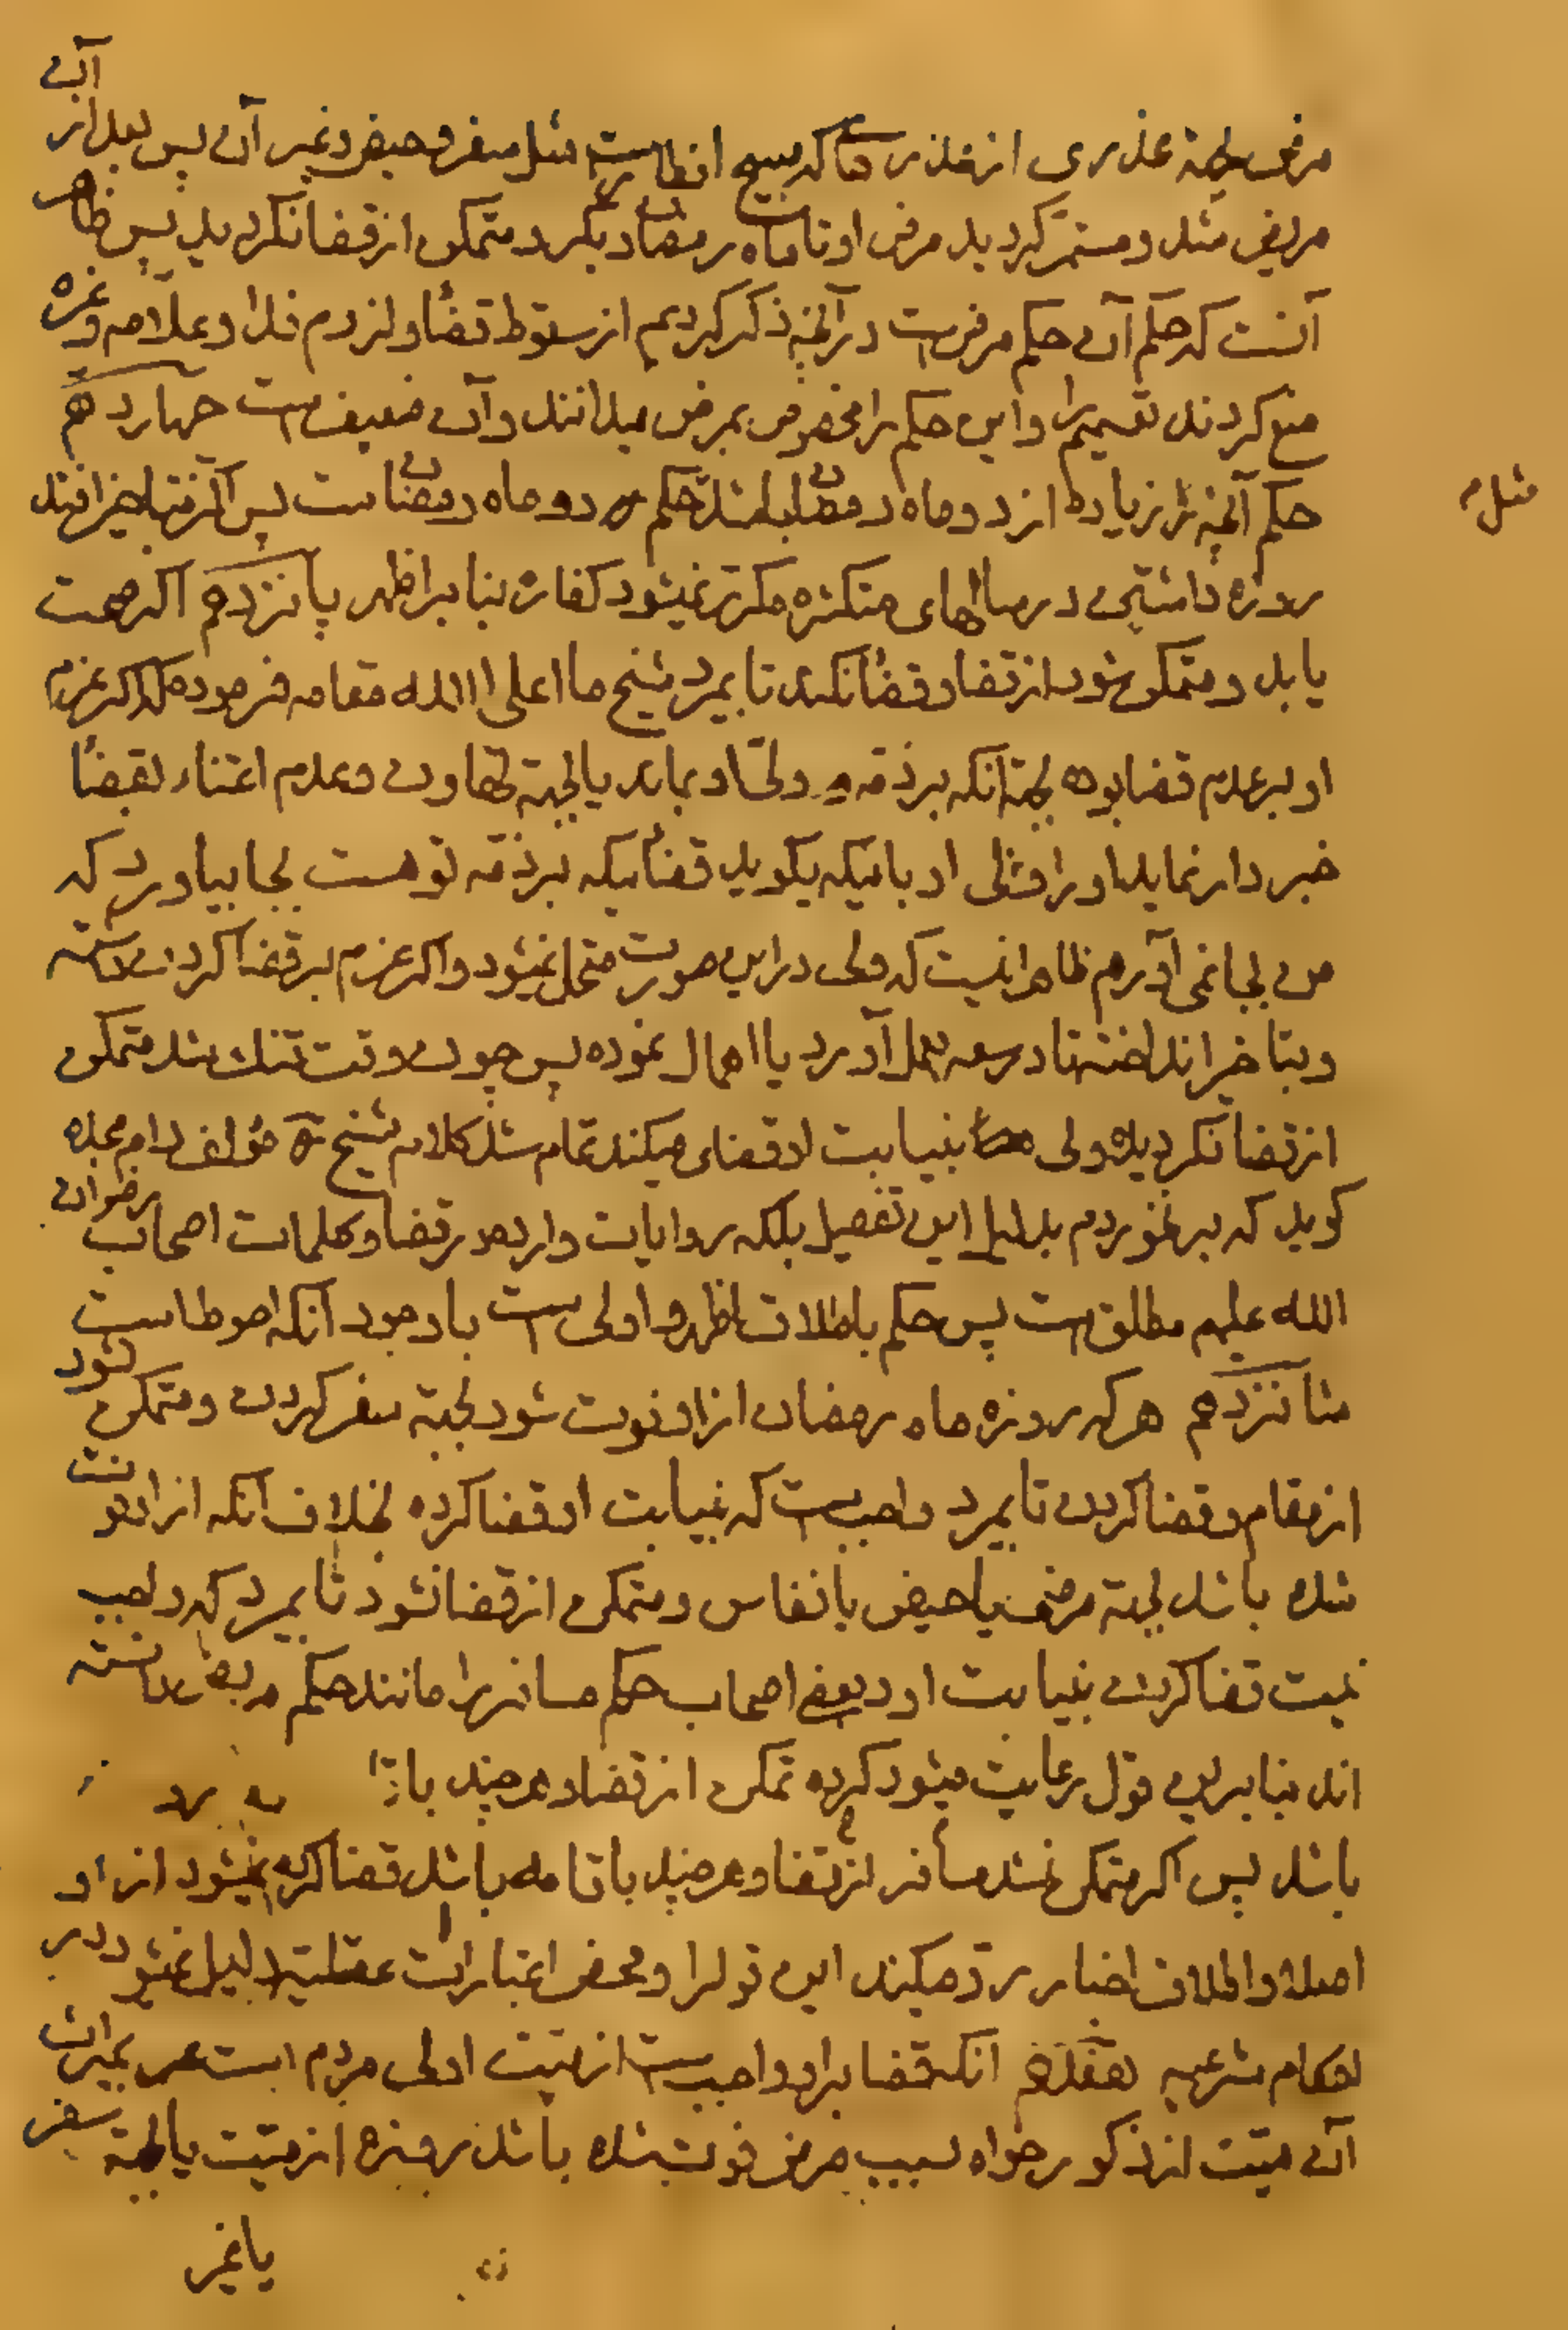 مرض بجهة عذری از عذرها که مبیح افطار است مثل سفر و حیض و غیر آن پس بعد از آن
مریض شد و مستمر گردید مرض او تا ماه رمضان دیگر و متمکن از قضا نگردید پس ظاهر
آنست که حکم آن حکم مرض است در آنچه ذکر کردیم از سقوط قضا و لزوم فدا و علامه وغیره
منع کردند تعمیم را و این حکم را مخصوص بمرض میدانند و آن ضعیف است چهاردهم
حکم آنچه زیاده از دو ماه رمضان باشد مثل حکم دو ماه رمضانست پس اگر بتاخیر افتد
روزه داشتن در سالهای متکثره مکرر نمیشود کفاره بنا بر اظهر پانزدهم اگر صحت
یابد و متمکن شود از قضا و قضا نکند تا بمیرد شیخ ما اعلی الله مقامه فرموده که اگر عزم
او بر عدم قضا بوده بجهة آنکه بر ذمه ولی او بماند یا بجهة تهاون و عدم اعتناء بقضا
خبردار نماید او را ولی او باینکه بگوید قضائیکه بر ذمه تو هست بجا بیاور که
من بجا نمی آورم ظاهر اینست که ولی در این صورت متحمل نمیشود و اگر عزم بر قضا کردن داشته
و بتاخیر انداخته تا در سعه بعمل آورد یا اهمال نموده پس چون وقت تنگ شد متمکن
از قضا نگردیده ولی بنیابت او قضای میکند تمام شد کلام شیخ مؤلف دام مجده
گوید که بر نخوردم بدلیل این تفصیل بلکه روایات وارده در قضا و کلمات اصحاب رضوان
الله علیهم مطلق است پس حکم باطلاق اظهر و اولی است با وجود آنکه احوط است
شانزدهم هر که روزه ماه رمضان از او فوت شود بجهة سفر کردن و متمکن شود
از مقام و قضا کردن تا بمیرد واجب است که بنیابت او قضا کرده بخلاف آنکه از او فوت
شده باشد بجهة مرض یا حیض یا نفاس و متمکن از قضا نشود تا بمیرد که واجب
نیست قضا کردن بنیابت او و بعضی اصحاب حکم مسافر را مانند حکم مریض دانسته
اند بنا بر این قول رعایت میشود کرده تمکن از قضا و هر چند
باشد پس اگر متمکن نشد مسافر از قضا و هر چند باقامه باشد قضا کرده نمیشود از او
اصلا و اطلاق اخبار رد میکند این قول را و محض اعتبارات عقلیه دلیل نمیشود در
احکام شرعیه هفدهم آنکه قضا بر او واجب است از میت اولی مردم است بمیراث
آن میت از ذکور خواه بسبب مرض فوت شده باشد روزه از میت یا بجهة سفر
یا غیر
مثل